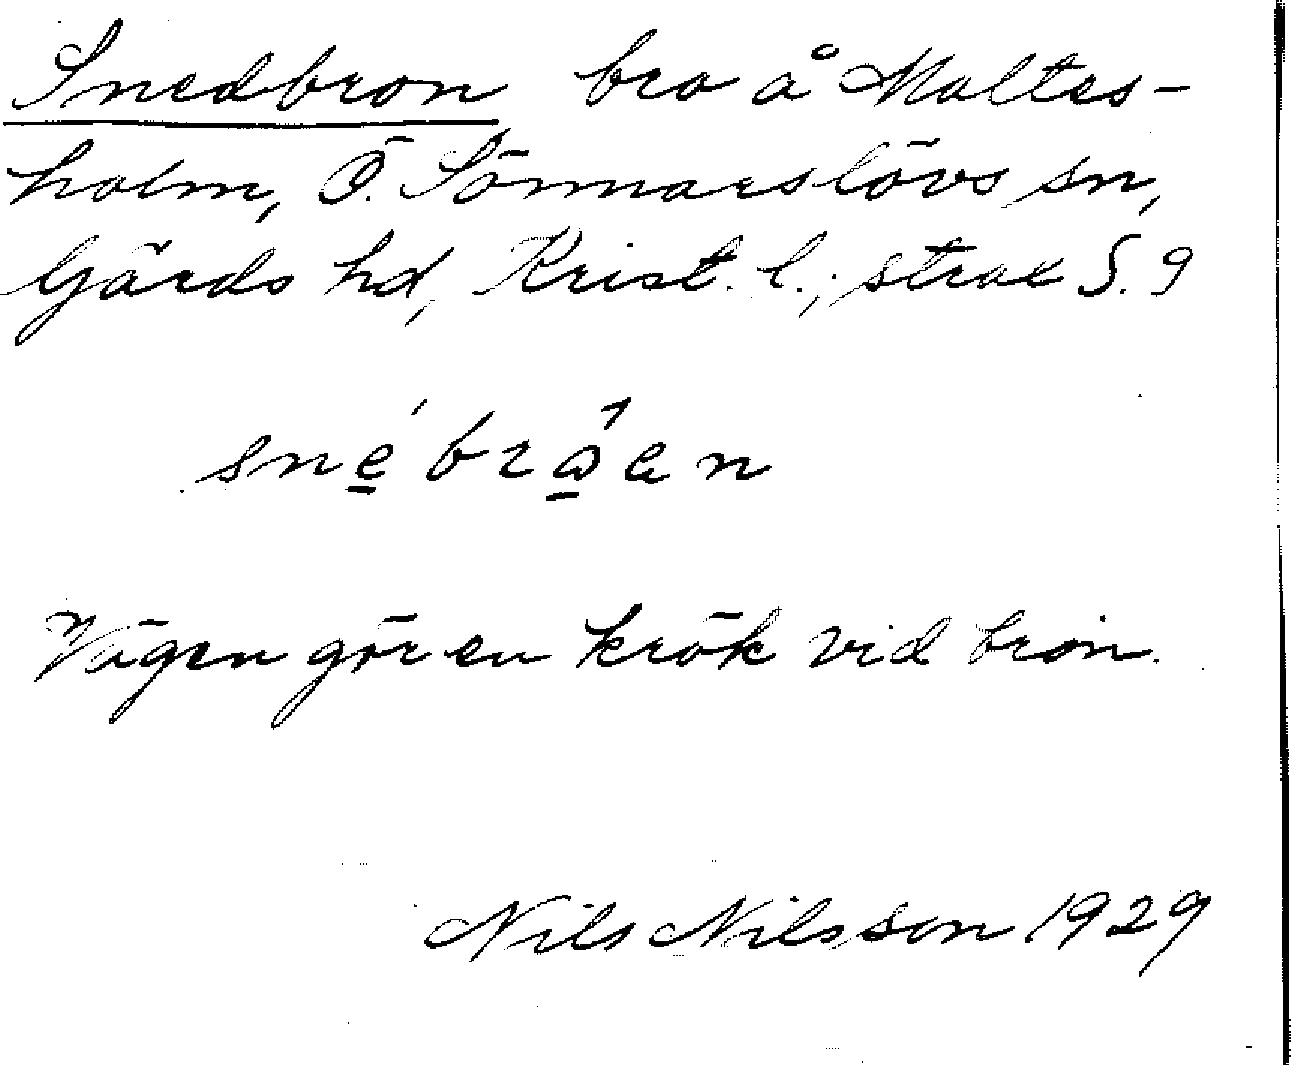 Snedbron bro å Maltes-
holm, Ö. Sönnarslövs sn,
Gärds hd, Krist. l.; strax S. 9
snébråen
Vägen gör en krök vid bron.
Nils Nilsson 1929